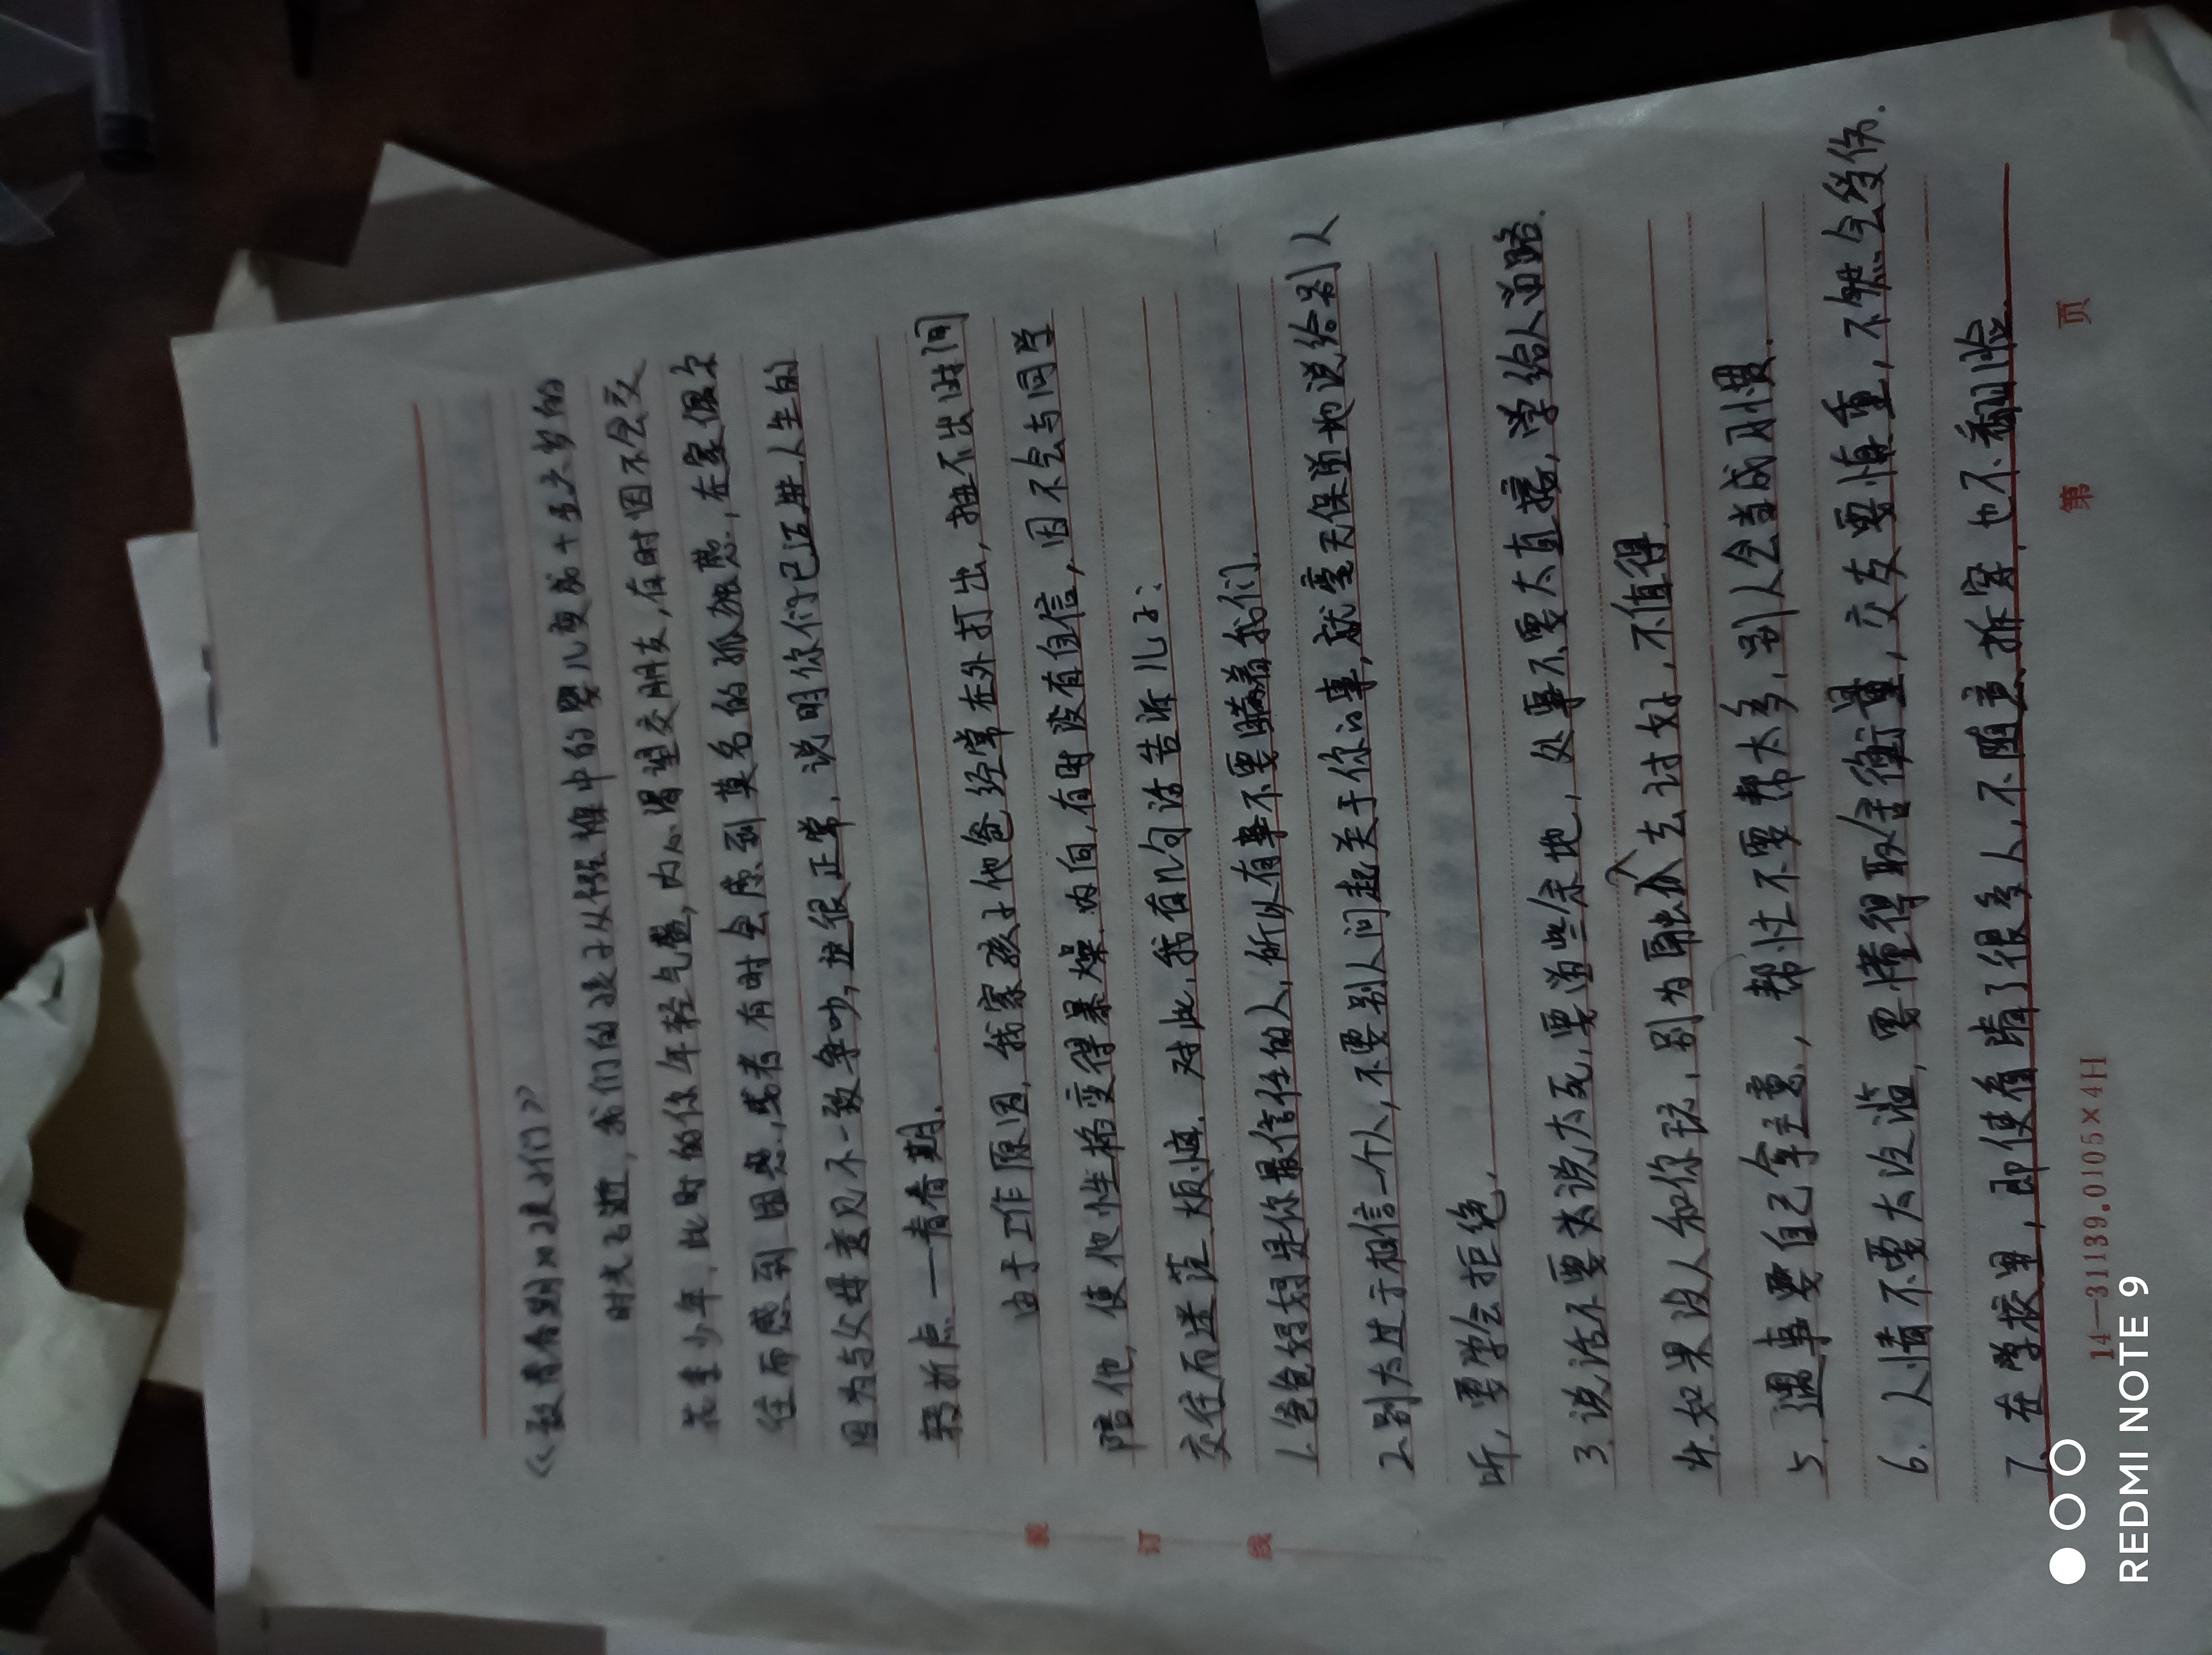 《致青春期的孩子们》
时光飞逝，我们的孩子从襁褓中的婴儿变成十五六岁的
花季少年，此时的你年轻气盛，内心渴望交朋友，有时因不会交
往而感到困惑，或者有时会感到莫名的孤独感，在家偶尔
因为与父母意见不一致争吵，这很正常，说明你们已迈进人生的
转折点——青春期.
由于工作原因，我家孩子他爸经常在外打出，抽不出时间
陪他，使他性格变得暴燥、内向，有时没有自信，因不会与同学
交往而迷茫、烦恼. 对此，我有几句话告诉儿子：
1.爸爸妈妈是你最信任的人，所以有事不要瞒着我们.
2.别太过于相信一个人，不要别人问起关于你的事，就毫无保留地说给别人
听，要学会拒绝.
3.说话不要说太死，要留些余地，处事不要太直接，学给人留路.
4.如果没人和你玩，别为融入去讨好，不值得.
5.遇事要自己拿主意，帮忙不要帮太多，别人会当成习惯.
6.人情不要太泛滥，要懂得取舍衡量，交友要慎重，不然会受伤.
7.在学校里，即使看清了很多人，不随意拆穿，也不翻脸.
装
订
线
14—31139.0105×4H
第 页
REDMI NOTE 9